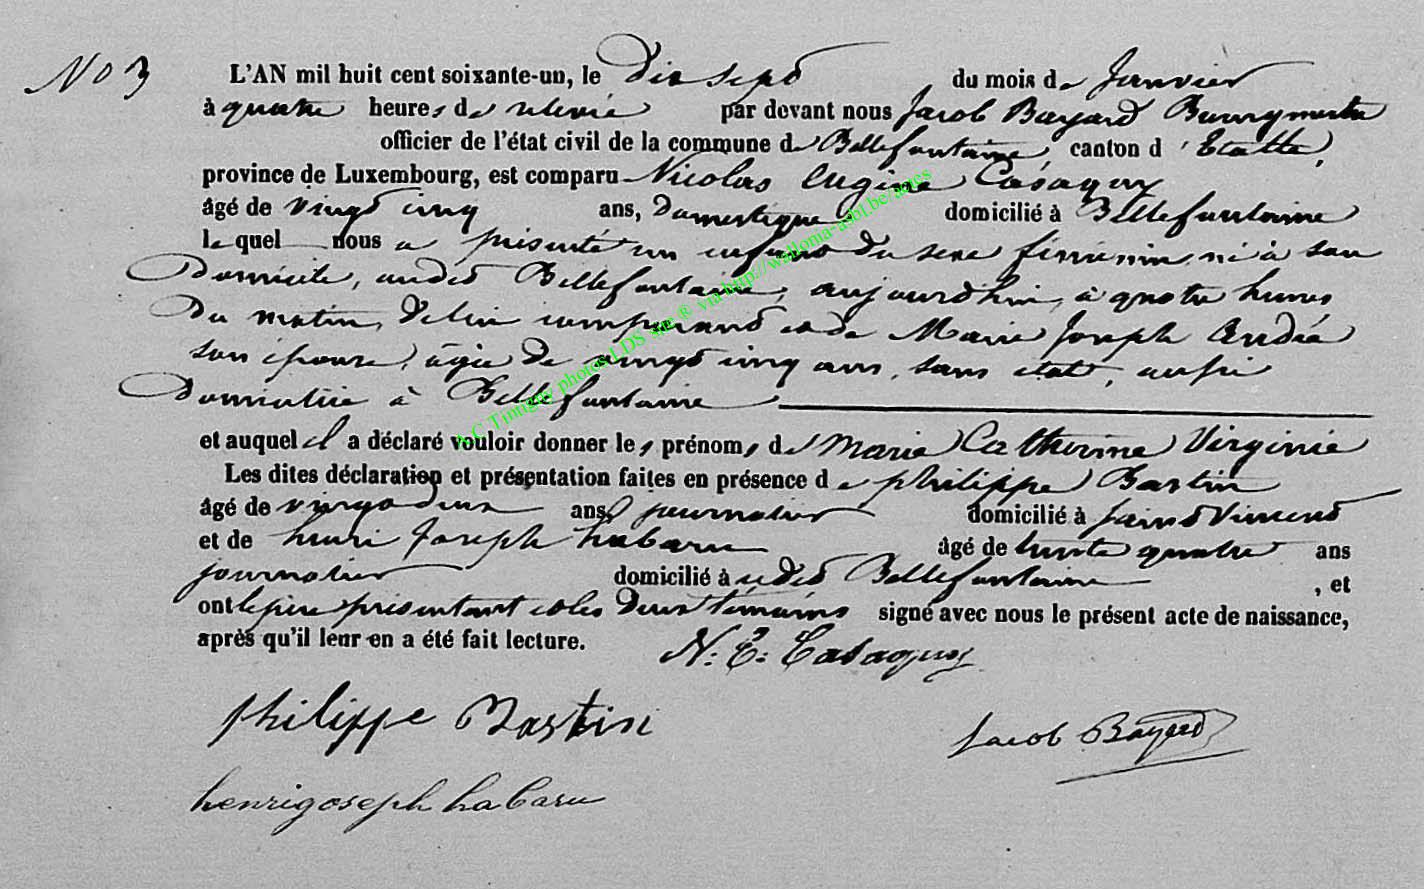 No 3
L'AN mil huit cent soixante-un, le Dix sept du mois de Janvier
à quatre heures de relevée par devant nous Jacob Bayard Bourgmestre
officier de l'état civil de la commune de Bellefontaine, canton d'Etalle,
province de Luxembourg, est comparu Nicolas Eugène Casaquy
âgé de vingt cinq ans, Domestique domicilié à Bellefontaine
lequel nous a présenté un enfant du sexe féminin, né à son
Domicile, audit Bellefontaine, aujourdhui, à quatre heures
Du matin, De lui comparant et de Marie Joseph André
son épouse, âgée de vingt cinq ans, sans état, aussi
Domiciliée à Bellefontaine
et auquel il a déclaré vouloir donner les prénoms de Marie Catherine Virginie
Les dites déclaration et présentation faites en présence de philippe Bastin
âgé de vingt deux ans, journalier domicilié à saint Vincent
et de henri Joseph habaru âgé de trente quatre ans
journalier domicilié à udit Bellefontaine, et
ont le père présentant et les Deux témoins signé avec nous le présent acte de naissance,
après qu'il leur en a été fait lecture.
N: E: Casaquy
philippe Bastin
Jacob Bayard
henrigoseph habaru
A.C Tintigny photos LDS site ® via http://wallonia-asbl.be/actes